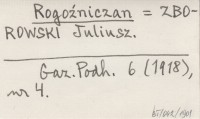 Rogoźniczan = ZBO-
ROWSKI Juliusz.
Gaz. Podh. 6 (1918),
nr 4.